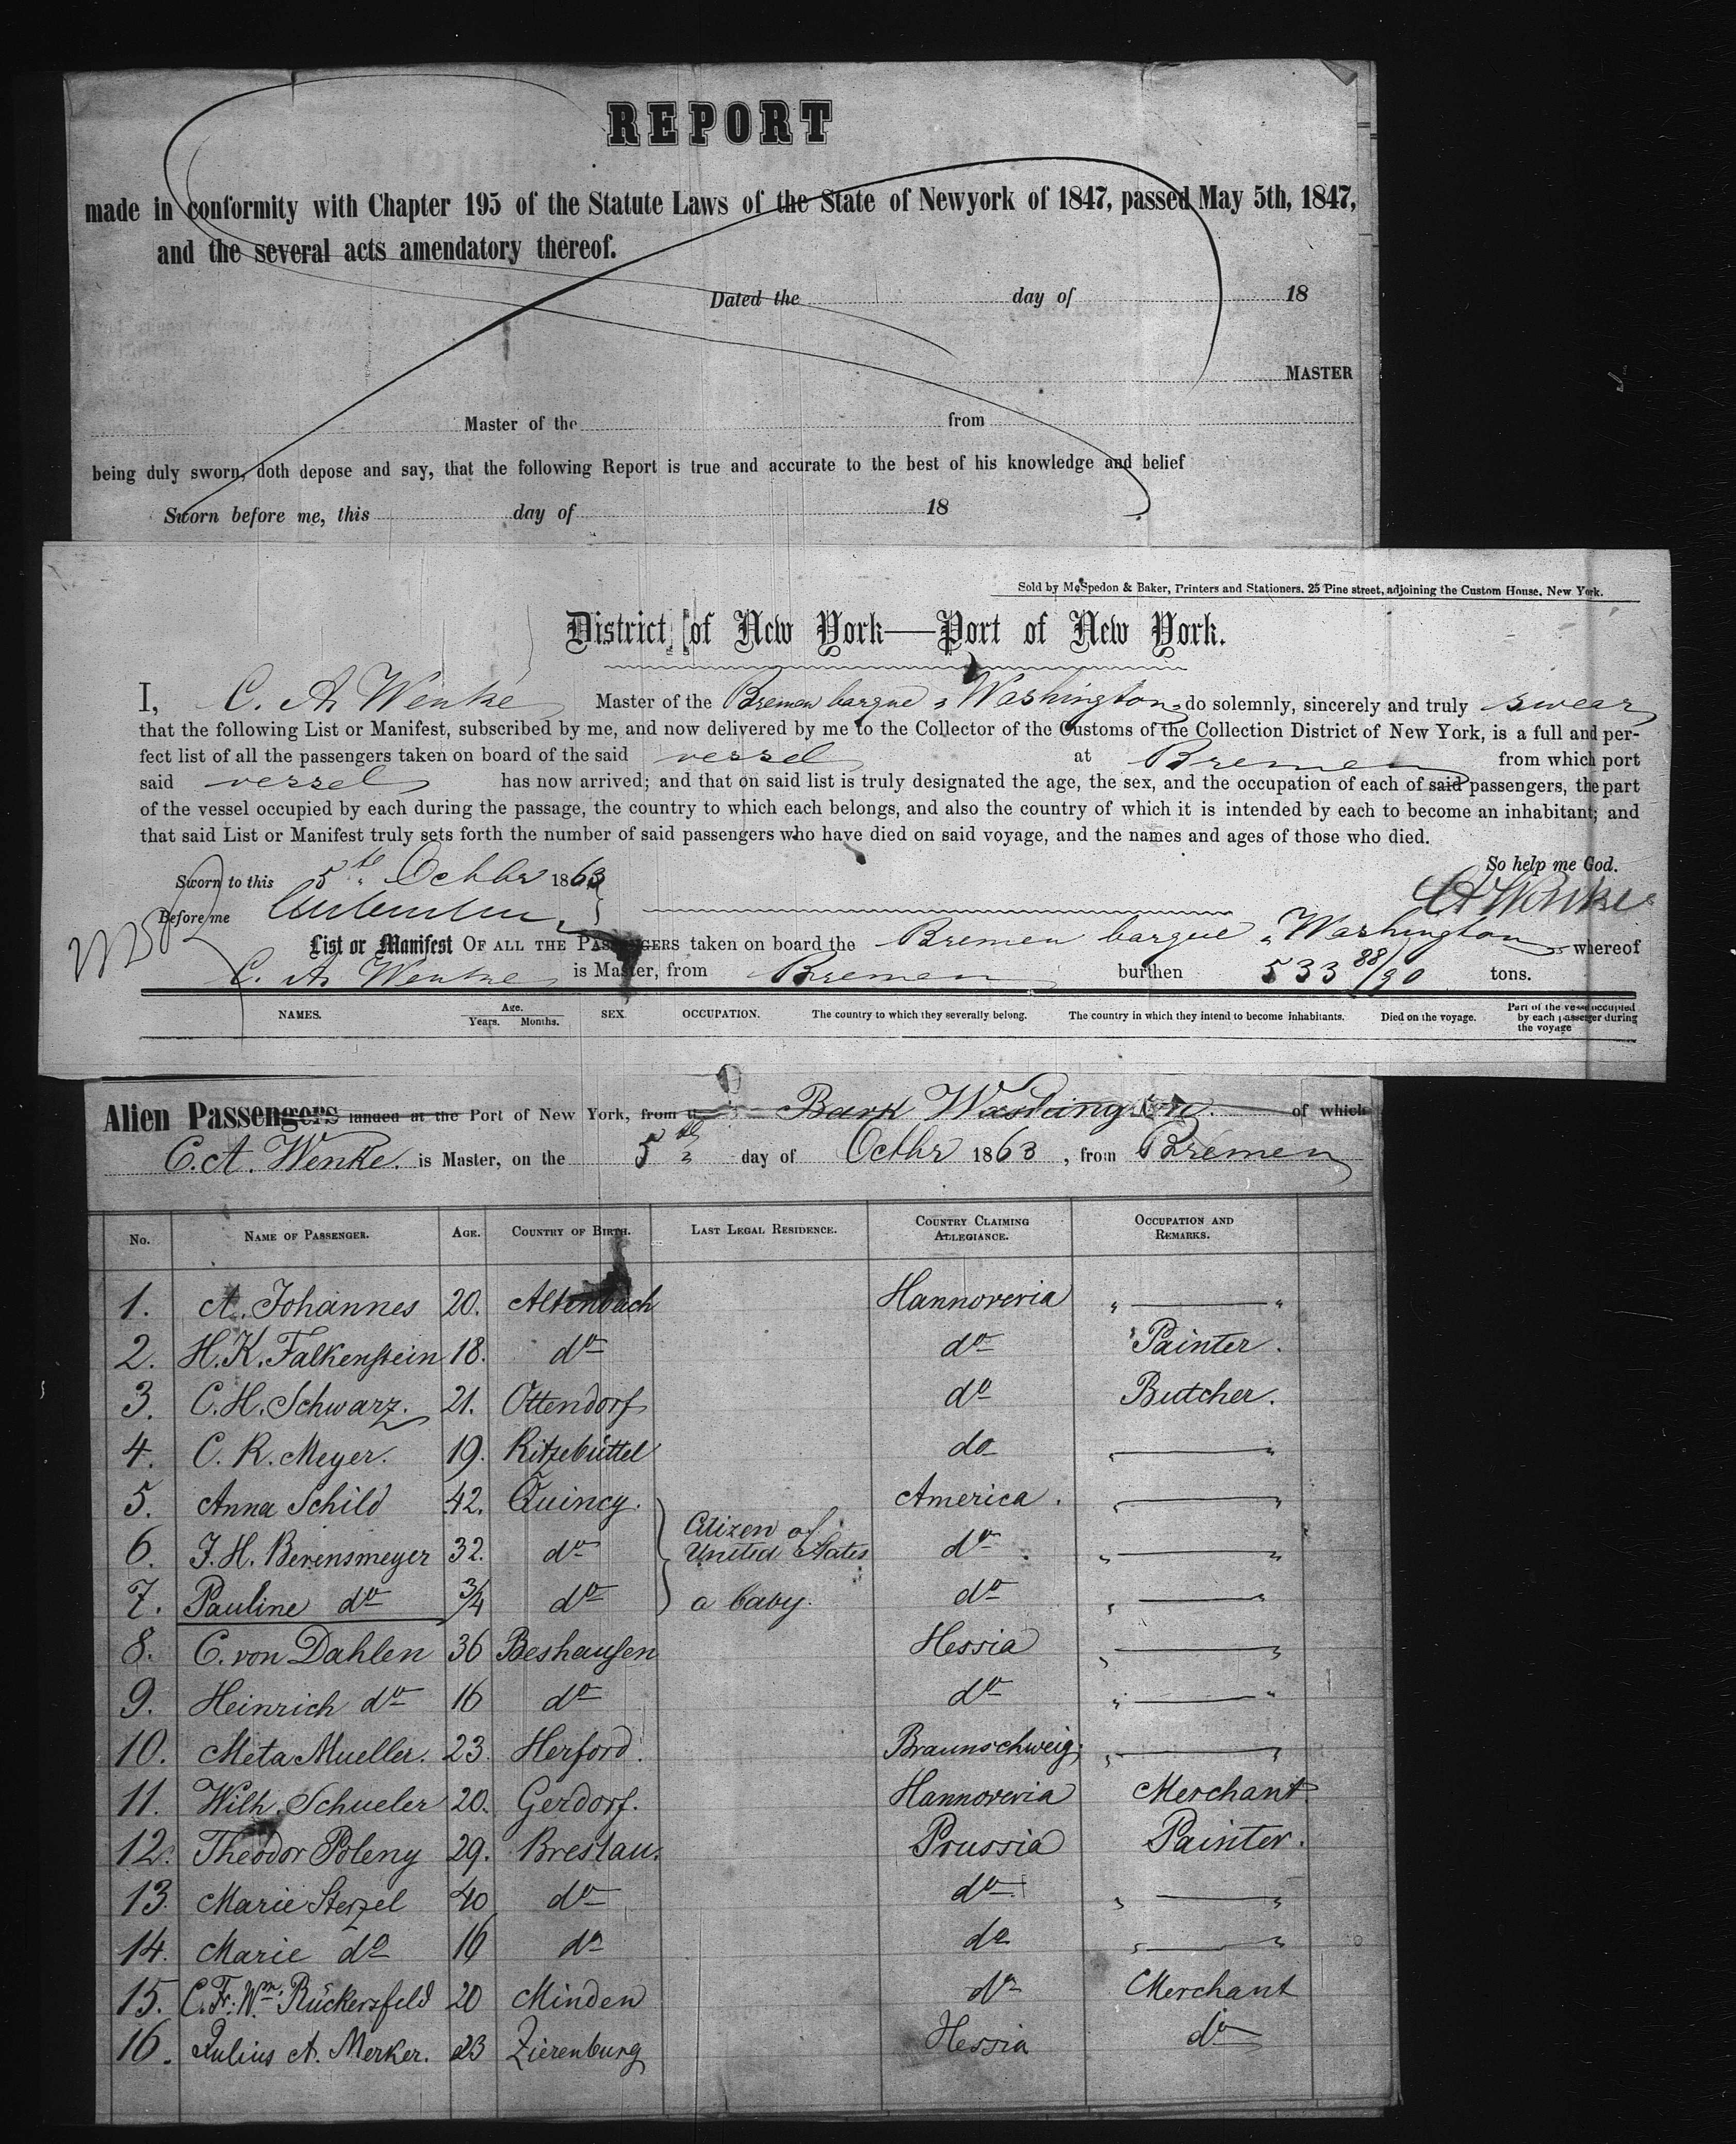 REPORT
made in conformity with Chapter 195 of the Statute Laws of the State of Newyork of 1847, passed May 5th, 1847,
and the several acts amendatory thereof.
Dated the day of 18
MASTER
Master of the from
being duly sworn, doth depose and say, that the following Report is true and accurate to the best of his knowledge and belief
Sworn before me, this day of 18
Sold by McSpedon & Baker, Printers and Stationers. 25 Pine street, adjoining the Custom House, New York.
District of New York—Port of New York.
I, C. A. Wenke Master of the Bremen barque „Washington" do solemnly, sincerely and truly swear
that the following List or Manifest, subscribed by me, and now delivered by me to the Collector of the Customs of the Collection District of New York, is a full and per-
fect list of all the passengers taken on board of the said vessel at Bremen from which port
said vessel has now arrived; and that on said list is truly designated the age, the sex, and the occupation of each of said passengers, the part
of the vessel occupied by each during the passage, the country to which each belongs, and also the country of which it is intended by each to become an inhabitant; and
that said List or Manifest truly sets forth the number of said passengers who have died on said voyage, and the names and ages of those who died.
So help me God.
Sworn to this 5th Octbr 1863
CA Wenke
Before me
List or Manifest OF ALL THE PASSENGERS taken on board the Bremen barque „Washington" whereof
C. A. Wenke is Master, from Bremen burthen 533 88/90 tons.
NAMES. Age. Years. Months. SEX. OCCUPATION. The country to which they severally belong. The country in which they intend to become inhabitants. Died on the voyage. Part of the vessel occupied by each passenger during the voyage
Alien Passengers landed at the Port of New York, from Bark Washington of which
C. A. Wenke. is Master, on the 5th day of Octbr 1863, from Bremen
No. NAME OF PASSENGER. AGE. COUNTRY OF BIRTH. LAST LEGAL RESIDENCE. COUNTRY CLAIMING ALLEGIANCE. OCCUPATION AND REMARKS.
1. A. Johannes 20. Altenbach Hannoveria " — "
2. H. K. Falkenstein 18. do do Painter.
3. C. H. Schwarz. 21. Ottendorf do Butcher.
4. C. R. Meyer. 19. Ritzebüttel do " — "
5. Anna Schild 42. Quincy. America. " — "
6. J. H. Berensmeyer 32. do Citizen of United States do " — "
7. Pauline do 3/4 do a baby. do " — "
8. C. von Dahlen 36 Beshausen Hessia " — "
9. Heinrich do 16 do do " — "
10. Meta Mueller. 23. Herford. Braunschweig " — "
11. Wilh. Schueler 20. Gerdorf. Hannoveria Merchant.
12. Theodor Poleny 29. Breslau. Prussia Painter.
13. Marie Sterzel 40 do do " — "
14. Marie do 16 do do " — "
15. C. Fr. Wm. Rückersfeld 20 Minden do Merchant
16. Julius A. Merker. 23 Zierenburg Hessia do